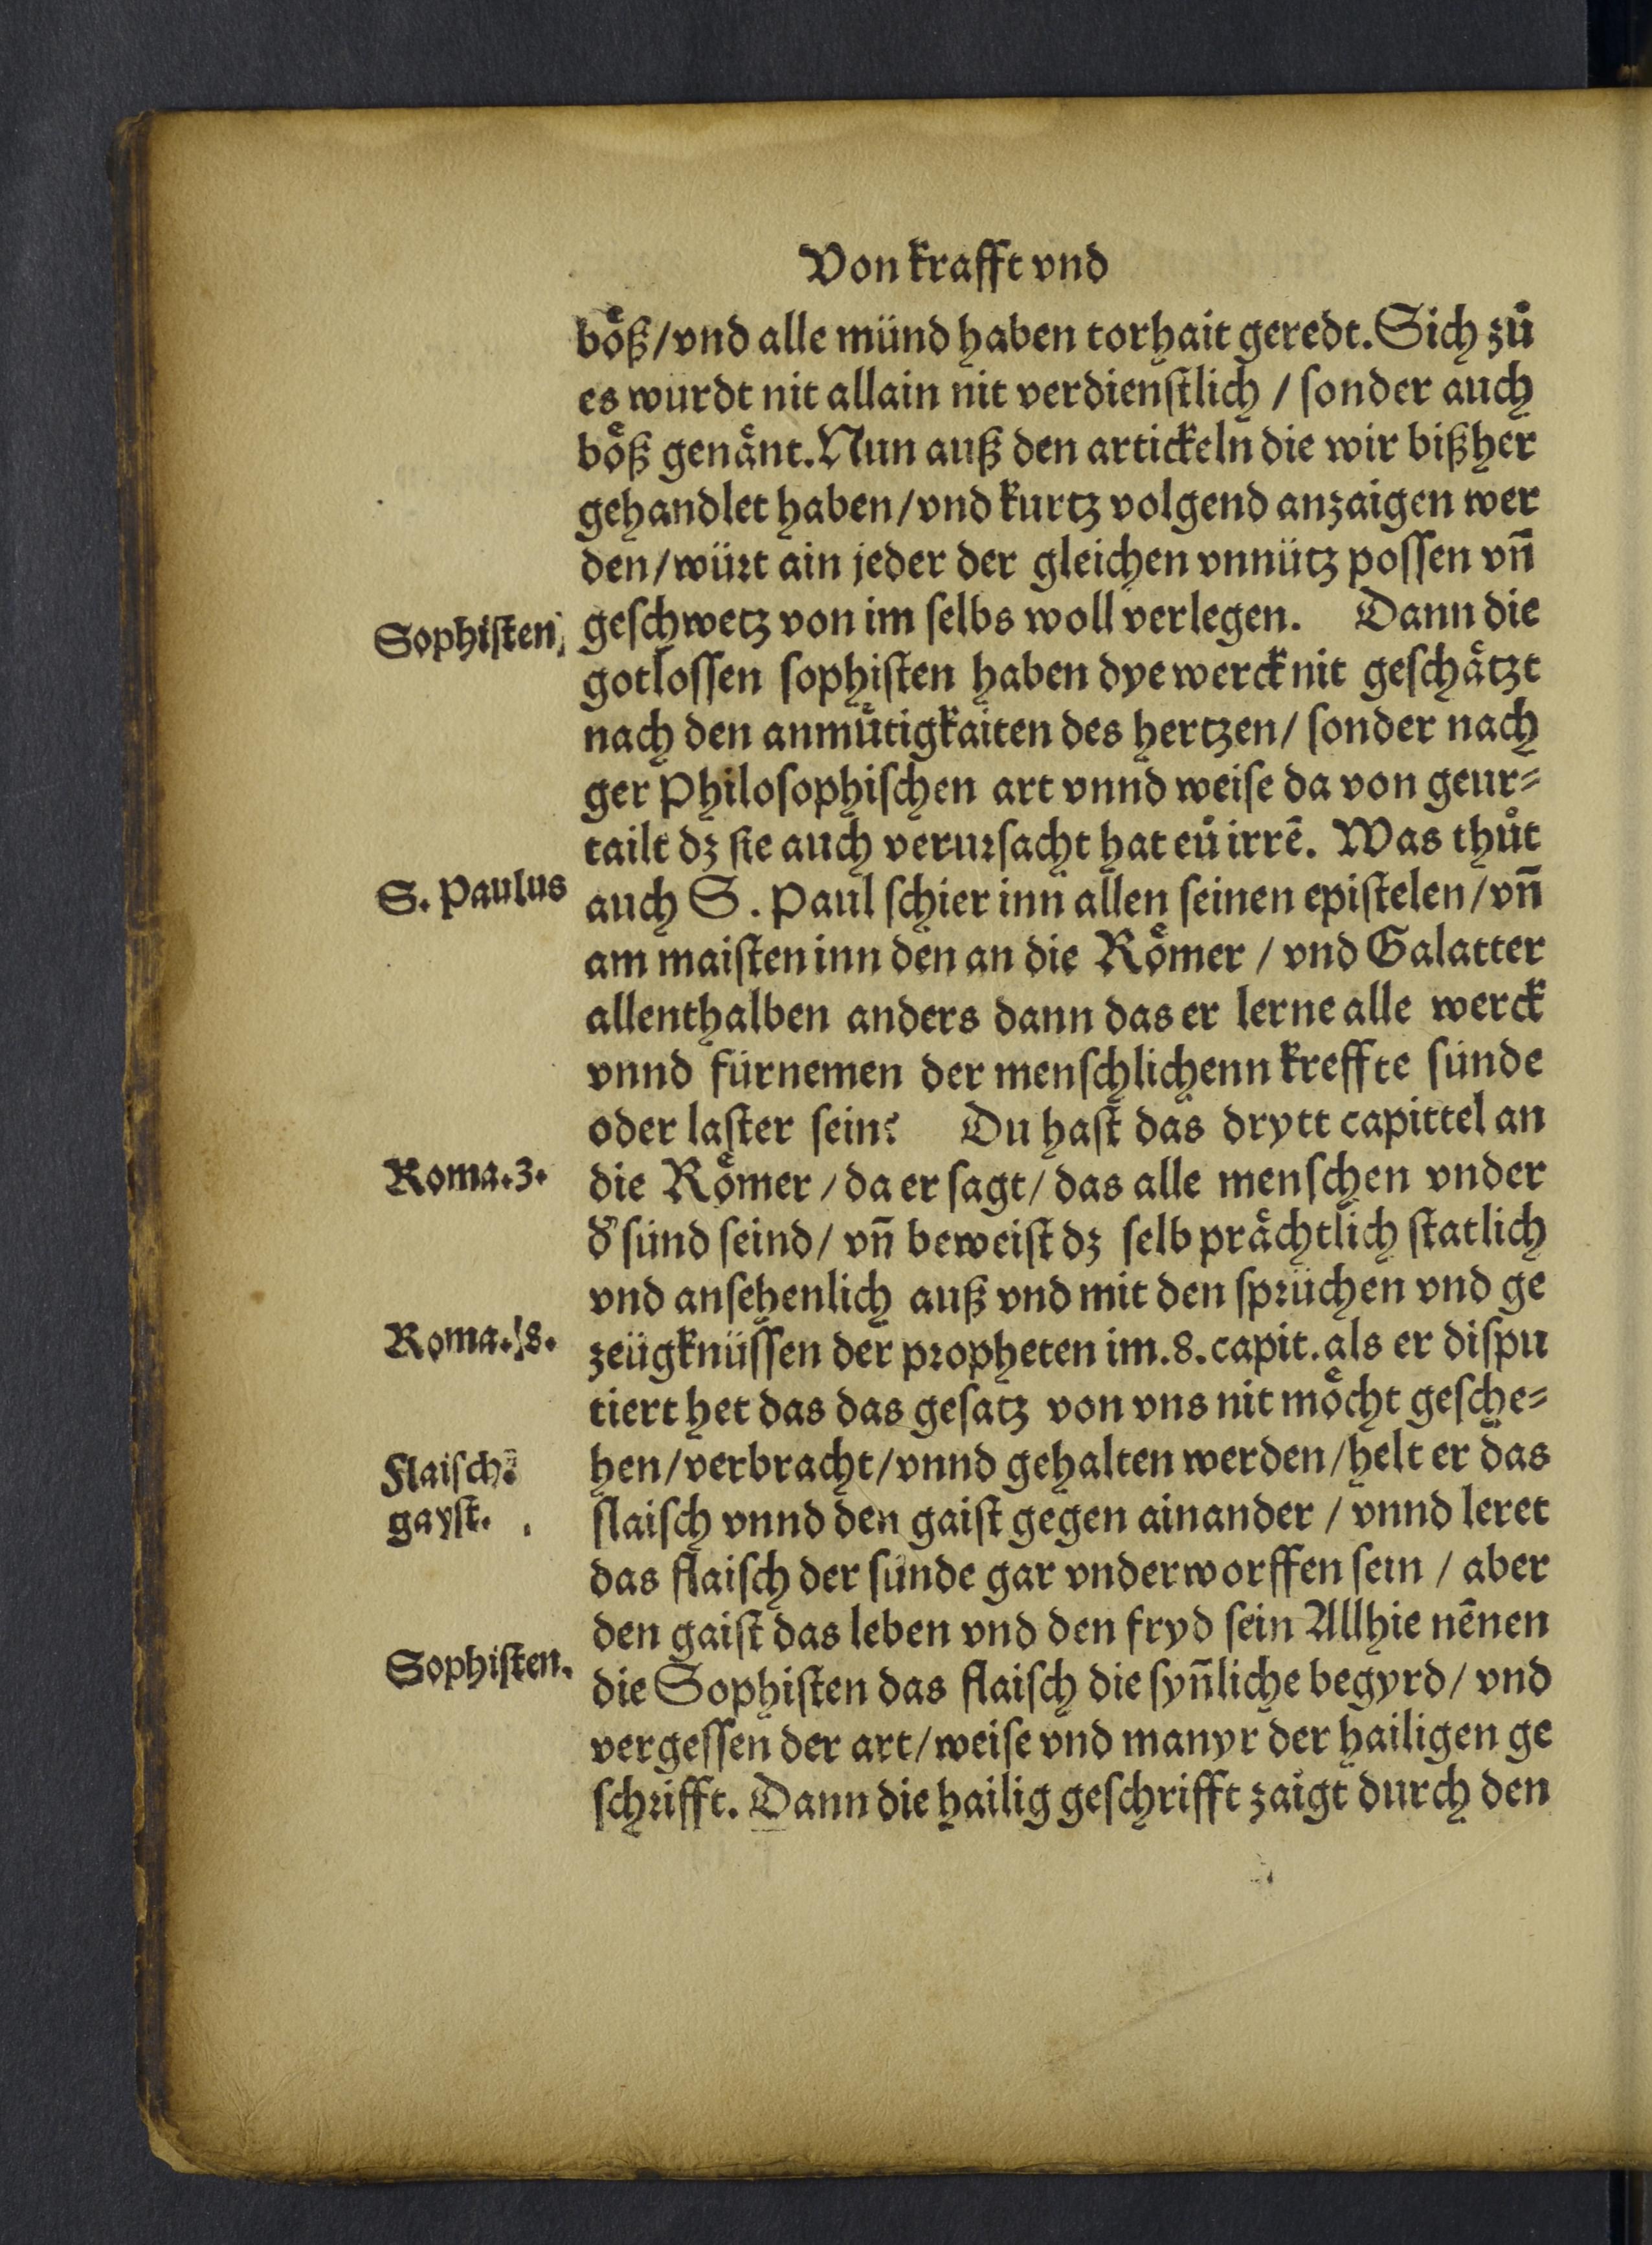 Von krafft vnd
boͤß/vnd alle münd haben torhait geredt. Sich zuͦ
es wurdt nit allain nit verdienſtlich / ſonder auch
boͤß genaͤnt. Nun auß den artickeln die wir bißher
gehandlet haben/vnd kurtz volgend anzaigen wer
den/würt ain jeder der gleichen vnnütz poſſen vn̄
Sophiſten
geſchwetz von im ſelbs woll verlegen. Dann die
gotloſſen ſophiſten haben dye werck nit geſchaͤtzt
nach den anmuͤtigkaiten des hertzen/ ſonder nach
ger Philoſophiſchen art vnnd weiſe da von geur⸗
tailt dz ſie auch verurſacht hat euͦ irrē. Was thuͦt
S. Paulus
auch S. Paul ſchier inn allen ſeinen epiſtelen/vn̄
am maiſten inn den an die Roͤmer / vnd Galatter
allenthalben anders dann das er lerne alle werck
vnnd fürnemen der menſchlichenn kreffte ſünde
oder laſter ſein? Du haſt das drytt capittel an
Roma.3.
die Roͤmer / da er ſagt/ das alle menſchen vnder
d' ſünd ſeind/ vn̄ beweiſt dz ſelb praͤchtlich ſtatlich
vnd anſehenlich auß vnd mit den ſprüchen vnd ge
Roma.8.
zeügknüſſen der propheten im.8.capit.als er diſpu
tiert het das das geſatz von vns nit moͤcht geſche⸗
Flaiſch.
hen/verbracht/vnnd gehalten werden/helt er das
gayſt.
flaiſch vnnd den gaiſt gegen ainander / vnnd leret
das flaiſch der ſünde gar vnderworffen ſein / aber
den gaiſt das leben vnd den fryd ſein Allhie nēnen
Sophiſten.
die Sophiſten das flaiſch die ſyn̄liche begyrd/ vnd
vergeſſen der art/weiſe vnd manyr der hailigen ge
ſchrifft. Dann die hailig geſchrifft zaigt durch den